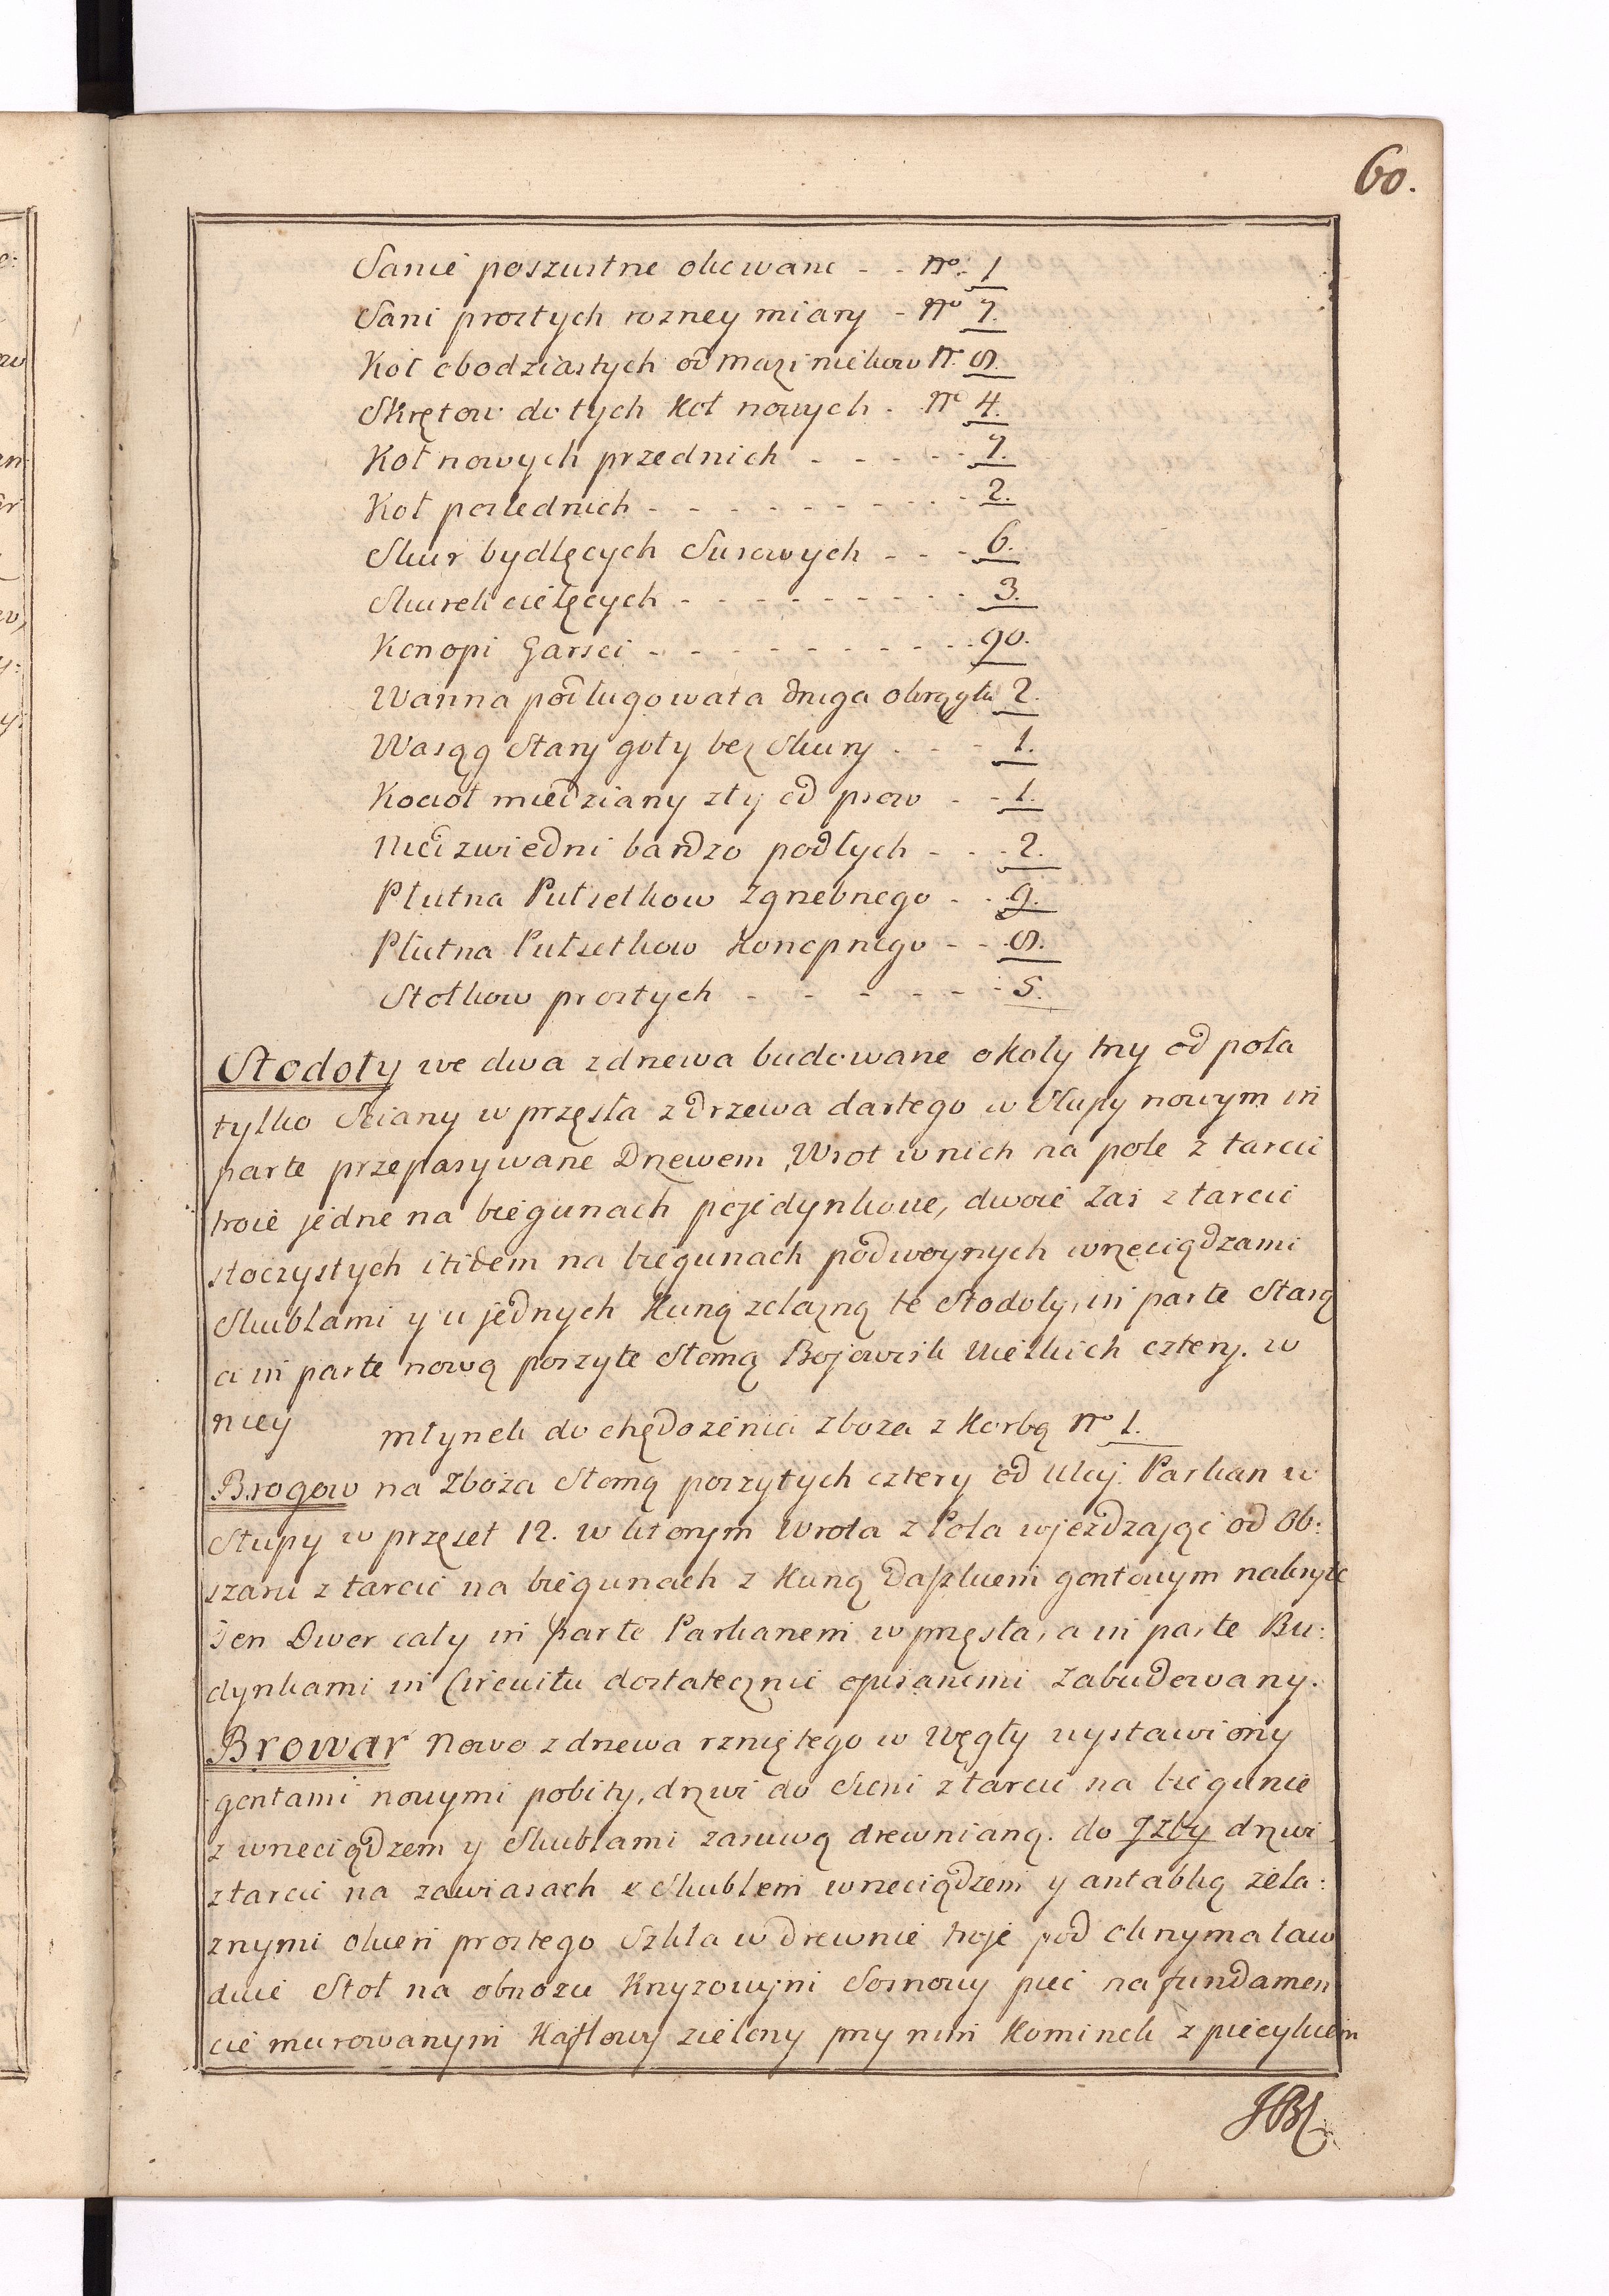 60.
Sanie poszustne okowane - - No. 1
Sani prostych rozney miary - No 7.
Koł obodziastych od mazi nickow N. 8.
Skrętow do tych Koł nowych - No 4.
Koł nowych przednich - - - - - 7.
Koł poslednich - - - - - - - - 2.
Skur bydlęcych Surowych - - - 6.
Skurek cielęcych - - - - - - - 3.
Konopi Garsci - - - - - - - - 90.
Wanna podługowata druga okrągła 2.
Wasąg Stary goły bez Skury - - - 1.
Kocioł miedziany zły od psow - - 1.
Niedzwiedni bardzo podłych - - - 2.
Płutna Putsetkow zgrzebnego - - 9.
Płutna Putsetkow Konopnego - - 8.
Stołkow prostych - - - - - - 5.
Stodoły we dwa z drzewa budowane okoły trzy od pola
tylko Sciany w przęsła z drzewa dartego w Słupy nowym in
parte przeparywane Drzewem, Wrot w nich na pole z tarcic
troie jedne na biegunach pojedynkowe, dwoie zas z tarcic
stoczystych itidem na biegunach podwoynych wrzeciądzami
Skublami y u jednych Kuną zelazną te Stodoły, in parte Starą
a in parte nową poszyte Słomą Bojowisk Wielkich cztery. w
niey młynek do chędozenia zboza z Korbą No 1.
Brogow na Zboza Słomą poszytych cztery od Ulicy. Parkan w
Słupy w przęseł 12. w ktorym Wrota z Pola wjezdzając od Ob:
szaru z tarcic na biegunach z Kuną Daszkiem gontowym nakryte
Ten Dwor cały in parte Parkanem w przęsła, a in parte Bu:
dynkami in Circuitu dostatecznie opisanemi zabudowany.
Browar Nowo z drzewa rzniętego w Węgły wystawiony
gontami nowymi pobity, drzwi do Sieni z tarcic na biegunie
z wrzeciądzem y Skublami zasuwą drewnianą. do Jzby drzwi
z tarcic na zawiasach z Skublem wrzeciądzem y antabką zela:
znymi okien prostego Szkła w drewnie troje pod oknyma ław
dwie Stoł na obnozu Krzyzowym Sosnowy piec na fundamen
cie murowanym Kaflowy zielony przy nim Kominek z piecykiem
JBL